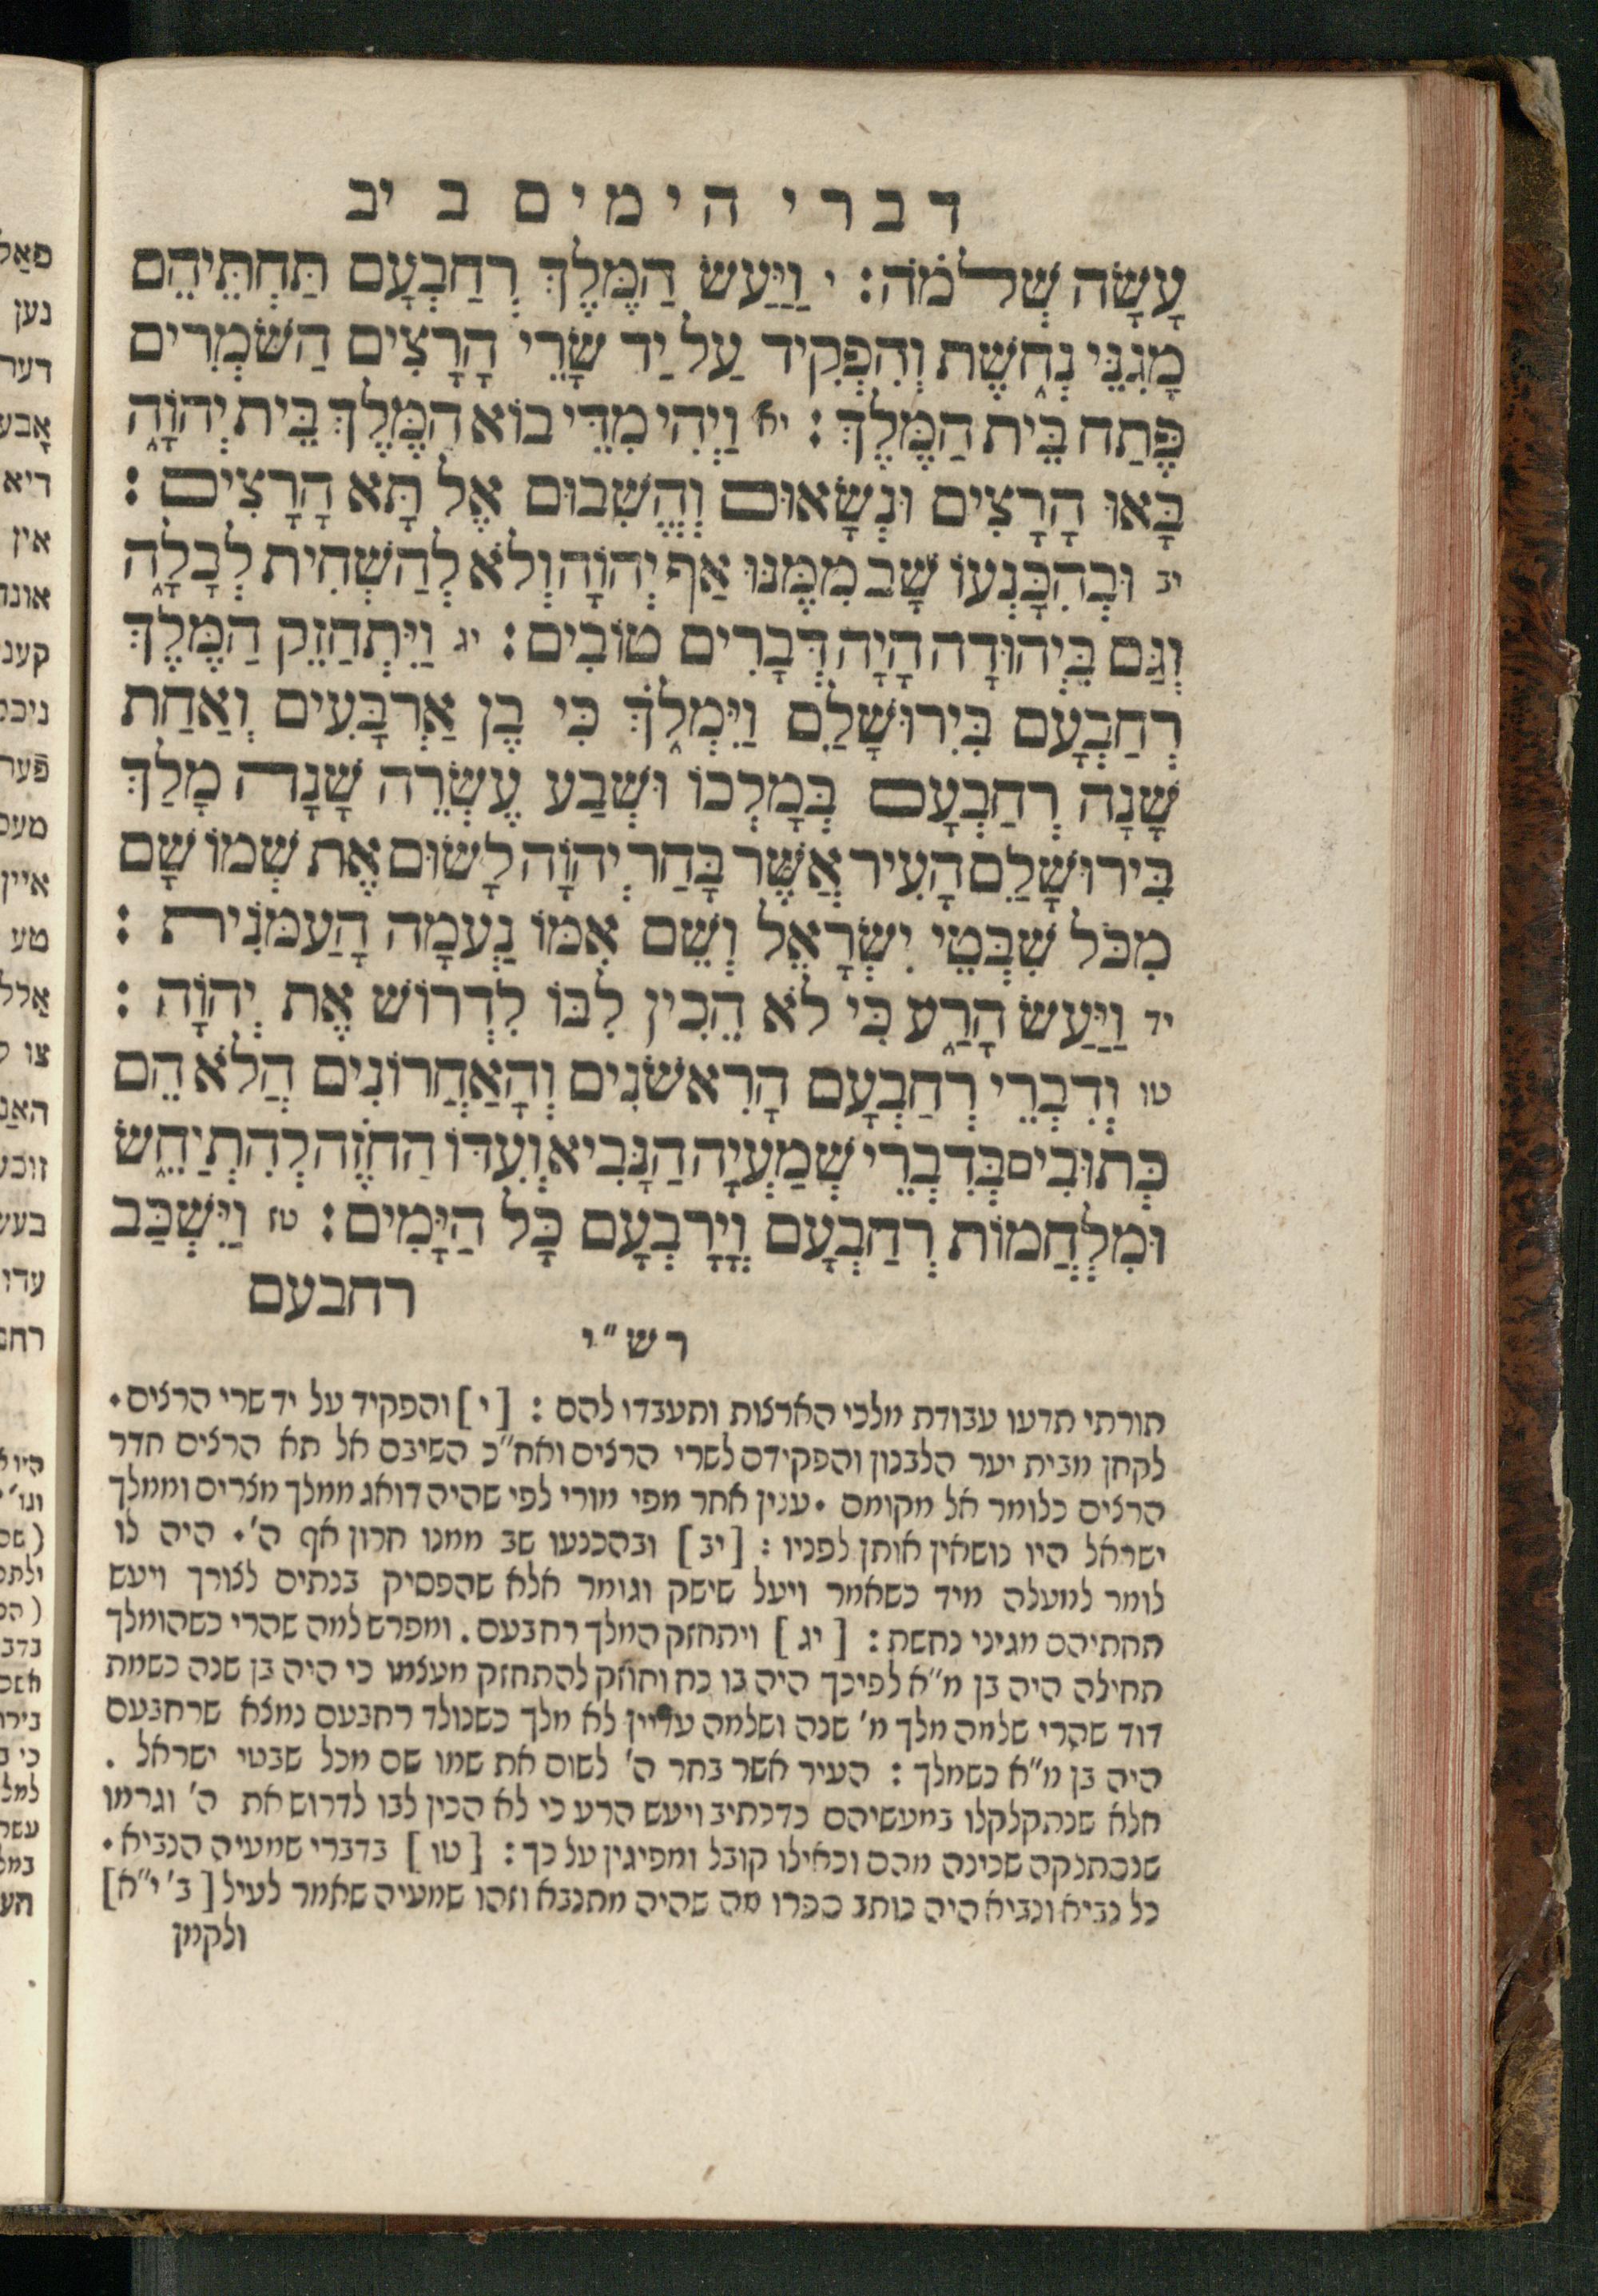 דברי הימים ב יב
עָשָׂה שְׁלֹמֹה: י וַיַּעַשׂ הַמֶּלֶךְ רְחַבְעָם תַּחְתֵּיהֶם
מָגִנֵּי נְחֹשֶׁת וְהִפְקִיד עַל יַד שָׂרֵי הָרָצִים הַשֹּׁמְרִים
פֶּתַח בֵּית הַמֶּלֶךְ: יא וַיְהִי מִדֵּי בוֹא הַמֶּלֶךְ בֵּית יְהוָֹה
בָּאוּ הָרָצִים וּנְשָׂאוּם וְהֱשִׁבוּם אֶל תָּא הָרָצִים:
יב וּבְהִכָּנְעוֹ שָׁב מִמֶּנּוּ אַף יְהוָֹה וְלֹא לְהַשְׁחִית לְכָלָה
וְגַם בִּיְהוּדָה הָיָה דְּבָרִים טוֹבִים: יג וַיִּתְחַזֵּק הַמֶּלֶךְ
רְחַבְעָם בִּירוּשָׁלִַם וַיִּמְלֹךְ כִּי בֶן אַרְבָּעִים וְאַחַת
שָׁנָה רְחַבְעָם בְּמָלְכוֹ וּשְׁבַע עֶשְׂרֵה שָׁנָה מָלַךְ
בִּירוּשָׁלִַם הָעִיר אֲשֶׁר בָּחַר יְהוָֹה לָשׂוּם אֶת שְׁמוֹ שָׁם
מִכֹּל שִׁבְטֵי יִשְׂרָאֵל וְשֵׁם אִמּוֹ נַעֲמָה הָעַמֹּנִית:
יד וַיַּעַשׂ הָרָע כִּי לֹא הֵכִין לִבּוֹ לִדְרוֹשׁ אֶת יְהוָֹה:
טו וְדִבְרֵי רְחַבְעָם הָרִאשֹׁנִים וְהָאַחֲרוֹנִים הֲלֹא הֵם
כְּתוּבִים בְּדִבְרֵי שְׁמַעְיָה הַנָּבִיא וְעִדּוֹ הַחֹזֶה לְהִתְיַחֵשׂ
וּמִלְחֲמוֹת רְחַבְעָם וְיָרָבְעָם כָּל הַיָּמִים: טז וַיִּשְׁכַּב
רחבעם
רש"י
תורתי תדעו עבודת מלכי הארצות ותעבדו להם: [י] והפקיד על יד שרי הרצים.
לקחן מבית יער הלבנון והפקידם לשרי הרצים ואח"כ השיבם אל תא הרצים חדר
הרצים כלומר אל מקומם. ענין אחר מפי מורי לפי שהיה דואג ממלך מצרים וממלך
ישראל היו נושאין אותן לפניו: [יב] ובהכנעו שב ממנו חרון אף ה'. היה לו
לומר למעלה מיד כשאמר ויעל שישק וגומר אלא שהפסיק בנתים לצורך ויעש
תחתיהם מגיני נחשת: [יג] ויתחזק המלך רחבעם. ומפרש למה שהרי כשהומלך
תחילה היה בן מ"א לפיכך היה בו כח וחוזק להתחזק מעצמו כי היה בן שנה כשמת
דוד שהרי שלמה מלך מ' שנה ושלמה עדיין לא מלך כשנולד רחבעם נמצא שרחבעם
היה בן מ"א כשמלך: העיר אשר בחר ה' לשום את שמו שם מכל שבטי ישראל.
אלא שנתקלקלו במעשיהם כדכתיב ויעש הרע כי לא הכין לבו לדרוש את ה' וגרמו
שנסתלקה שכינה מהם וכאילו קובל ומפיגין על כך: [טו] בדברי שמעיה הנביא.
כל נביא ונביא היה כותב ספרו מה שהיה מתנבא וזהו שמעיה שאמר לעיל [ב' י"א]
ולקמן